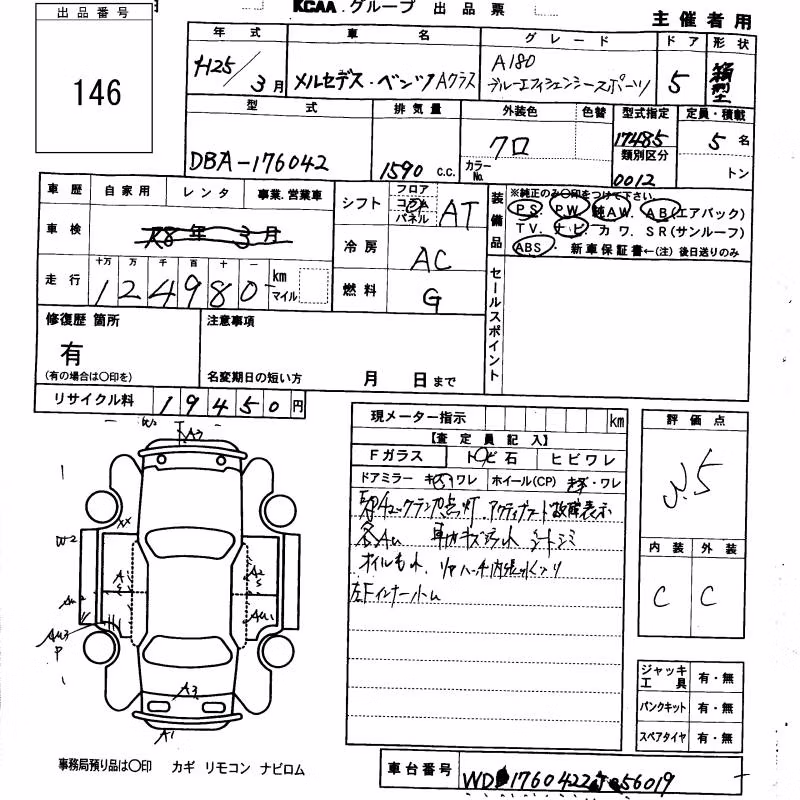 KCAA グループ 出品票
主催者用
出品番号
146
年式 車名 グレード ドア 形状
H25/3月 メルセデス・ベンツAクラス A180
ブルーエフィシェンシースポーツ 5 箱型
型式 排気量 外装色 色替 型式指定 定員・積載
DBA-176042 1590 c.c. クロ カラーNo. 17485 5名
類別区分
0012 トン
車歴 自家用 レンタ 事業.営業車
車検 R8年 3月
走行 十万 万 千 百 十 一
124980 km マイル
シフト フロア コラム パネル AT
冷房 AC
燃料 G
装備品 ※純正のみ○印をつけて下さい。
PS. PW. 純AW. AB(エアバック)
TV. ナビ. カワ. SR(サンルーフ)
ABS. 新車保証書←(注) 後日送りのみ
セールスポイント
修復歴 箇所
有
(有の場合は○印を)
注意事項
名変期日の短い方 月 日まで
リサイクル料 19450円
現メーター指示 km
【査定員記入】
Fガラス トビ石 ヒビワレ
ドアミラー キズ・ワレ ホイール(CP) キズ・ワレ
点灯 故障表示
各AU シートシミ
オイルもれ
左Fインナー
評価点
3.5
内装 外装
C C
A3
XX
W2
A
S
A2
S
AU1
AU3
P
A3
A1
ジャッキ工具 有・無
パンクキット 有・無
スペアタイヤ 有・無
事務局預り品は○印 カギ リモコン ナビロム
車台番号